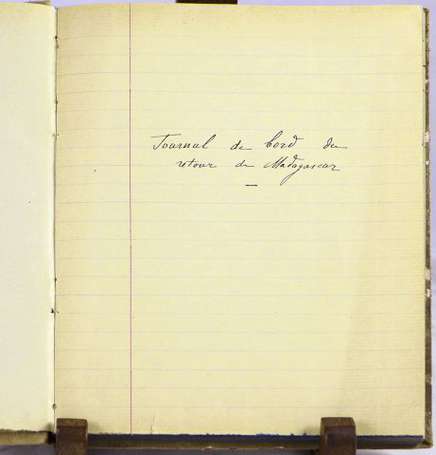 Journal de bord du
retour de Madagascar